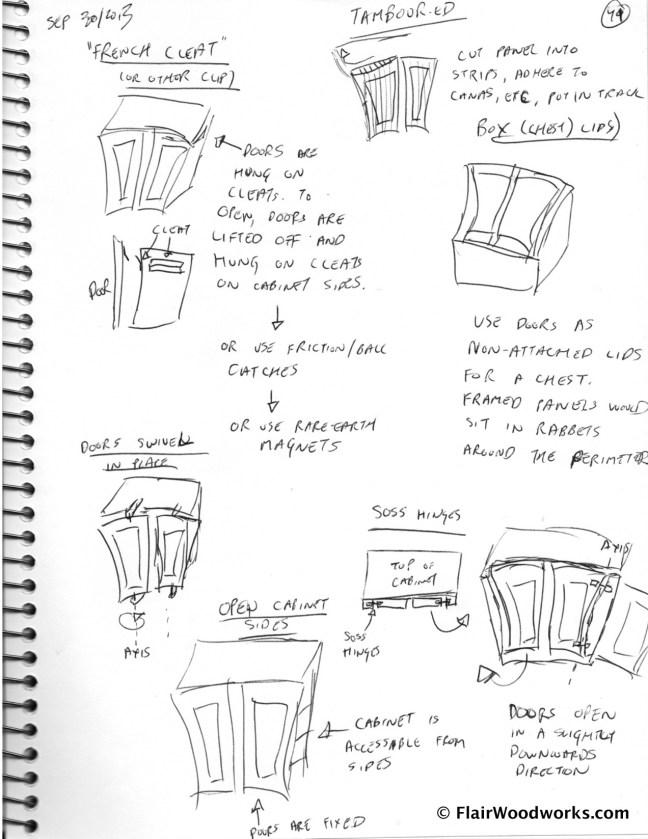 SEP 30/2013
49
"FRENCH CLEAT"
(OR OTHER CLIP)
DOORS ARE
HUNG ON
CLEATS. TO
OPEN, DOORS ARE
LIFTED OFF AND
HUNG ON CLEATS
ON CABINET SIDES.
CLEAT
DOOR
OR USE FRICTION/BALL
CATCHES
OR USE RARE-EARTH
MAGNETS
TAMBOUR-ED
CUT PANEL INTO
STRIPS, ADHERE TO
CANAS, ETC, PUT IN TRACK
BOX (CHEST) LIDS)
USE DOORS AS
NON-ATTACHED LIDS
FOR A CHEST.
FRAMED PANELS WOULD
SIT IN RABBETS
AROUND THE PERIMETER
DOORS SWIVEL
IN PLACE
AXIS
OPEN CABINET
SIDES
CABINET IS
ACCESSABLE FROM
SIDES
DOORS ARE FIXED
SOSS HINGES
TOP OF
CABINET
SOSS
HINGES
AXIS
DOORS OPEN
IN A SLIGHTLY
DOWNWARDS
DIRECTION
© FlairWoodworks.com